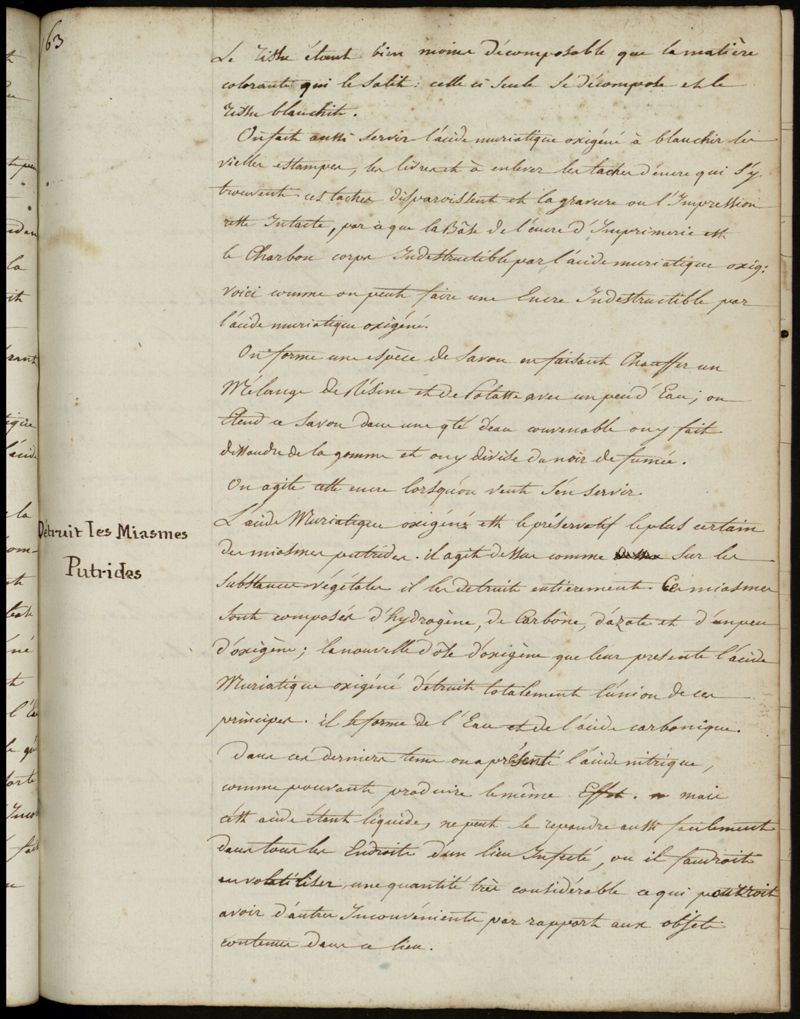 63
Le tissu étant bien moins décomposable que la matière
colorante qui le salit: celle ci seule se décompose et le
tissu blanchit.
On fait aussi servir l'acide muriatique oxigéné à blanchir les
vielles estampes, les livres et à enlever les taches d'encre qui s'y
trouvent. ces taches disparoissent et la gravure ou l'Impression
reste Intacte, par ce que la Bâse de l'encre d'Imprimerie est
le Charbon corps Indestructible par l'acide muriatique oxig:
Voici comme on peut faire une Encre Indestructible par
l'acide muriatique oxigéné.
On forme une espèce de savon en faisant Chauffer un
Mélange de Résine et de Potasse avec un peu d'Eau; on
Etend ce savon dans une qté d'eau convenable on y fait
dissoudre de la gomme et on y divise du noir de fumée.
On agite cette encre lorsqu'on veut s'en servir.
Détruit les Miasmes
Putrides
L'acide Muriatique oxigéné est le préservatif le plus certain
des miasmes putrides. il agit dessus comme sur les
substances végétales il les detruit entièrement. Ces miasmes
sont composés d'hydrogène, de Carbône, d'azote et d'un peu
d'oxigène; la nouvelle dôse d'oxigène que leur presente l'acide
Muriatique oxigéné détruit totalement l'union de ces
principes. il se forme de l'Eau et de l'acide carbonique.
Dans ces derniers tems on a présenté l'acide nitrique,
comme pouvant produire le même Effet. mais
cést acide étant liquide, ne peut se repandre aussi facilement
dans tous les Endroits d'un lieu Infecté, ou il faudroit
en volatiliser une quantité très considérable ce qui pourroit
avoir d'autres Inconvénients par rapport aux objets
contenus dans ce lieu.